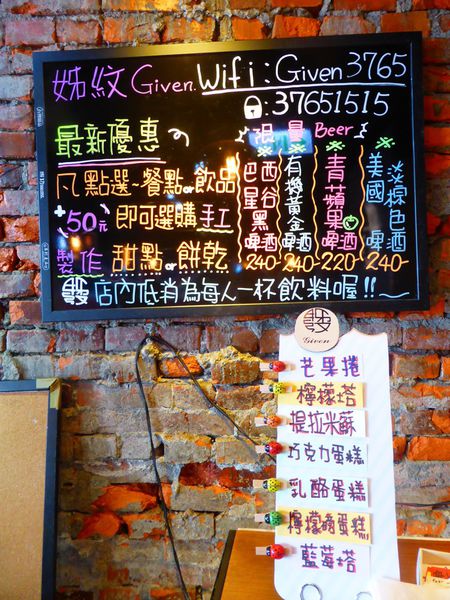 姊紋 Given. Wifi : Given 3765
: 37651515
最新優惠
凡點選~餐點or飲品
+50元 即可選購手工
製作 甜點or餅乾
限量 Beer
巴西星谷黑啤酒 240-
有機黃金啤酒 240-
青蘋果啤酒 220-
美國淡棕色啤酒 240-
店內低消為每人一杯飲料喔!!~
Given
芒果捲
檸檬塔
提拉米蘇
巧克力蛋糕
乳酪蛋糕
檸檬磅蛋糕
藍莓塔